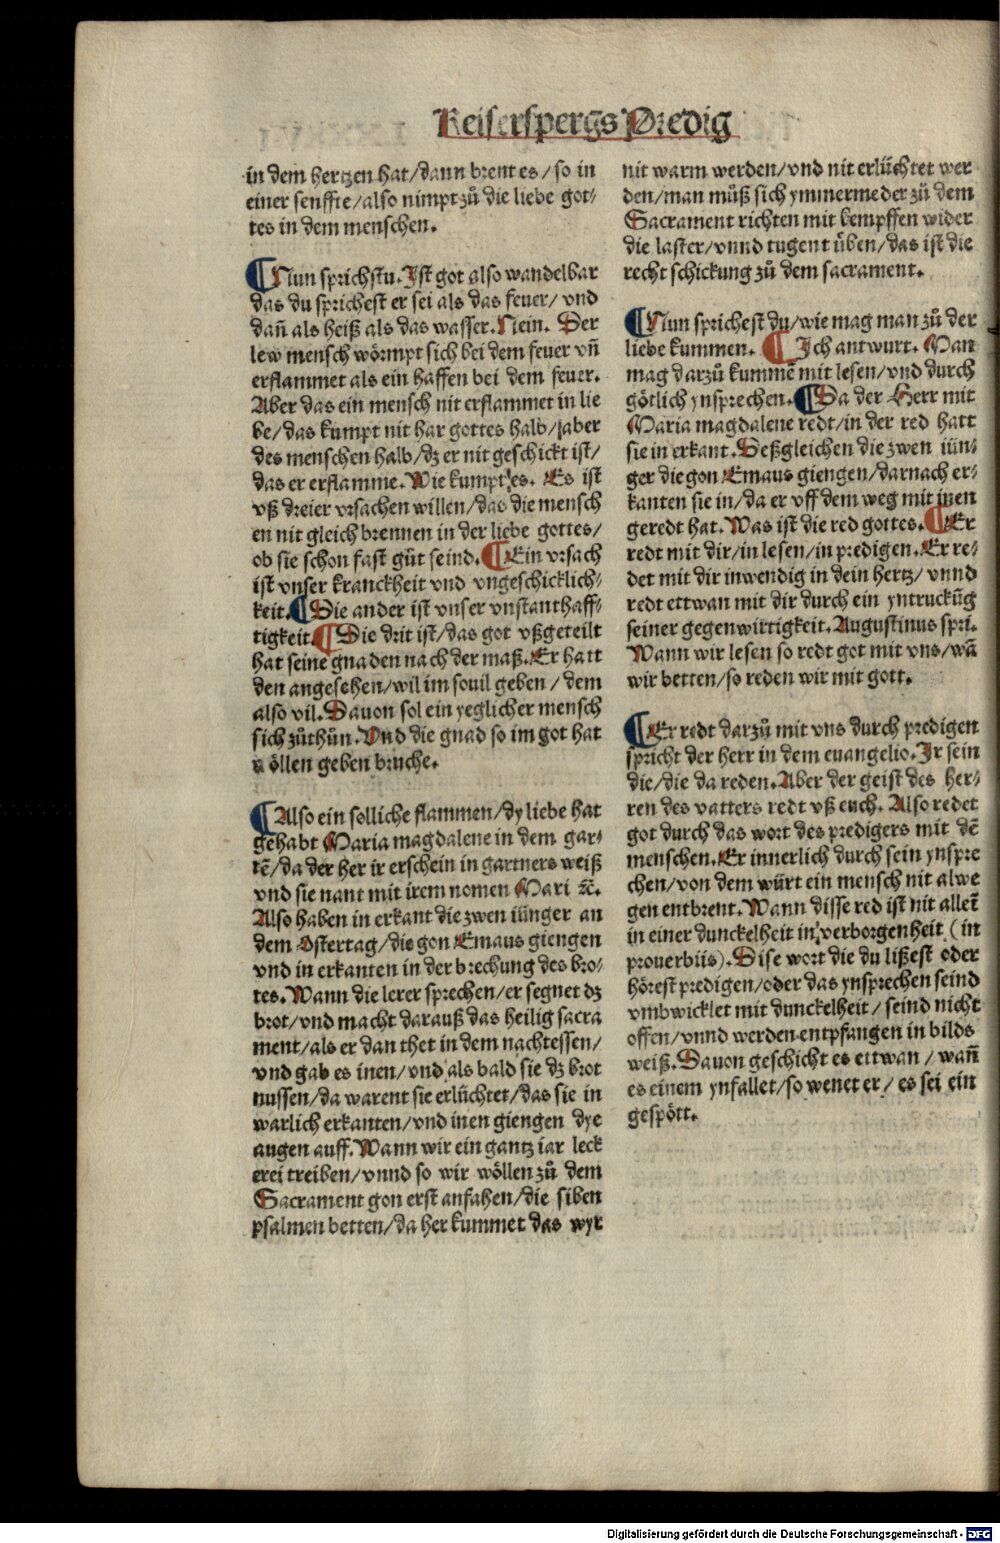 Keiserspergs Predig
in dem hertzen hat/dann brent es/so in
einer senffte/also nimpt zů die liebe got⸗
tes in dem menschen.
¶Nun sprichstu. Ist got also wandelbar
das du sprichest er sei als das feuer/vnd
dañ als heiß als das wasser. Nein. Der
lew mensch wörmpt sich bei dem feuer vñ
erflammet als ein haffen bei dem feuer.
Aber das ein mensch nit erflammet in lie
be/das kumpt nit har gottes halb/aber
des menschen halb/dz er nit geschickt ist/
das er erflamme. Wie kumpt es. Es ist
vß dreier vrsachen willen/das die mensch
en nit gleich brennen in der liebe gottes/
ob sie schon fast gůt seind. ¶Ein vrsach
ist vnser kranckheit vnd vngeschicklich⸗
keit. ¶Die ander ist vnser vnstanthaff⸗
tigkeit. ¶Die drit ist/das got vßgeteilt
hat seine gnaden nach der maß. Er hatt
den angesehen/wil im souil geben/dem
also vil. Dauon sol ein yeglicher mensch
sich zůthůn. Vnd die gnad so im got hat
wöllen geben bruche.
¶Also ein solliche flammen/dy liebe hat
gehabt Maria magdalene in dem gar⸗
tẽ/da der her ir erschein in gartners weiß
vnd sie nant mit irem nomen Mari ꝛc̃.
Also haben in erkant die zwen iünger an
dem Ostertag/die gon Emaus giengen
vnd in erkanten in der brechung des bro⸗
tes. Wann die lerer sprechen/er segnet dz
brot/vnd macht darauß das heilig sacra
ment/als er dan thet in dem nachtessen/
vnd gab es inen/vnd als bald sie dz brot
nussen/da warent sie erlüchtet/das sie in
warlich erkanten/vnd inen giengen dye
augen auff. Wann wir ein gantz iar leck
erei treiben/vnnd so wir wöllen zů dem
Sacrament gon erst anfahen/die siben
psalmen betten/da her kummet das wyr
nit warm werden/vnd nit erlüchtet wer
den/man můß sich ymmermeder zů dem
Sacrament richten mit kempffen wider
die laster/vnnd tugent üben/das ist die
recht schickung zů dem sacrament.
¶Nun sprichest du/wie mag man zů der
liebe kummen. ¶Ich antwurt. Man
mag darzů kummẽ mit lesen/vnd durch
götlich ynsprechen. ¶Da der Herr mit
Maria magdalene redt/in der red hatt
sie in erkant. Deßgleichen die zwen iün⸗
ger die gon Emaus giengen/darnach er⸗
kanten sie in/da er vff dem weg mit inen
geredt hat. Was ist die red gottes. ¶Er
redt mit dir/in lesen/in predigen. Er re⸗
det mit dir inwendig in dein hertz/vnnd
redt ettwan mit dir durch ein yntruckũg
seiner gegenwirtigkeit. Augustinus spri.
Wann wir lesen so redt got mit vns/wã
wir betten/so reden wir mit gott.
¶Er redt darzů mit vns durch predigen
spricht der herr in dem euangelio. Ir sein
die/die da reden. Aber der geist des her⸗
ren des vatters redt vß euch. Also redet
got durch das wort des predigers mit dẽ
menschen. Er innerlich durch sein ynspre
chen/von dem würt ein mensch nit alwe
gen entbrent. Wann disse red ist nit alleĩ
in einer dunckelheit in verborgenheit (in
prouerbiis). Dise wort die du lißest oder
hörest predigen/oder das ynsprechen seind
vmbwicklet mit dunckelheit/seind nicht
offen/vnnd werden entpfangen in bilds
weiß. Dauon geschicht es ettwan/wañ
es einem ynfallet/so wenet er/es sei ein
gespött.
Digitalisierung gefördert durch die Deutsche Forschungsgemeinschaft - DFG